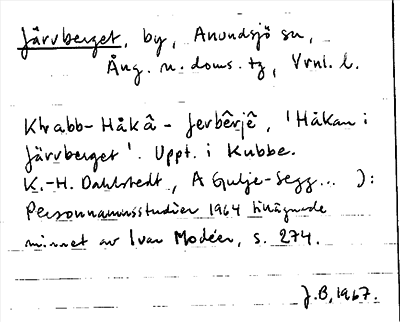 Järvberget, by, Anundsjö sn,
Ång. n. doms. tz, Vrnl. l.
Krabb-Håkâ - Jerbêrjê, 'Håkan i
Järvberget'. Uppt. i Kubbe.
K.-H. Dahlstedt, A Gulje-Segg... ):
Personnamnsstudier 1964 tillägnade
minnet av Ivar Modéer, s. 274.
J.B, 1967.